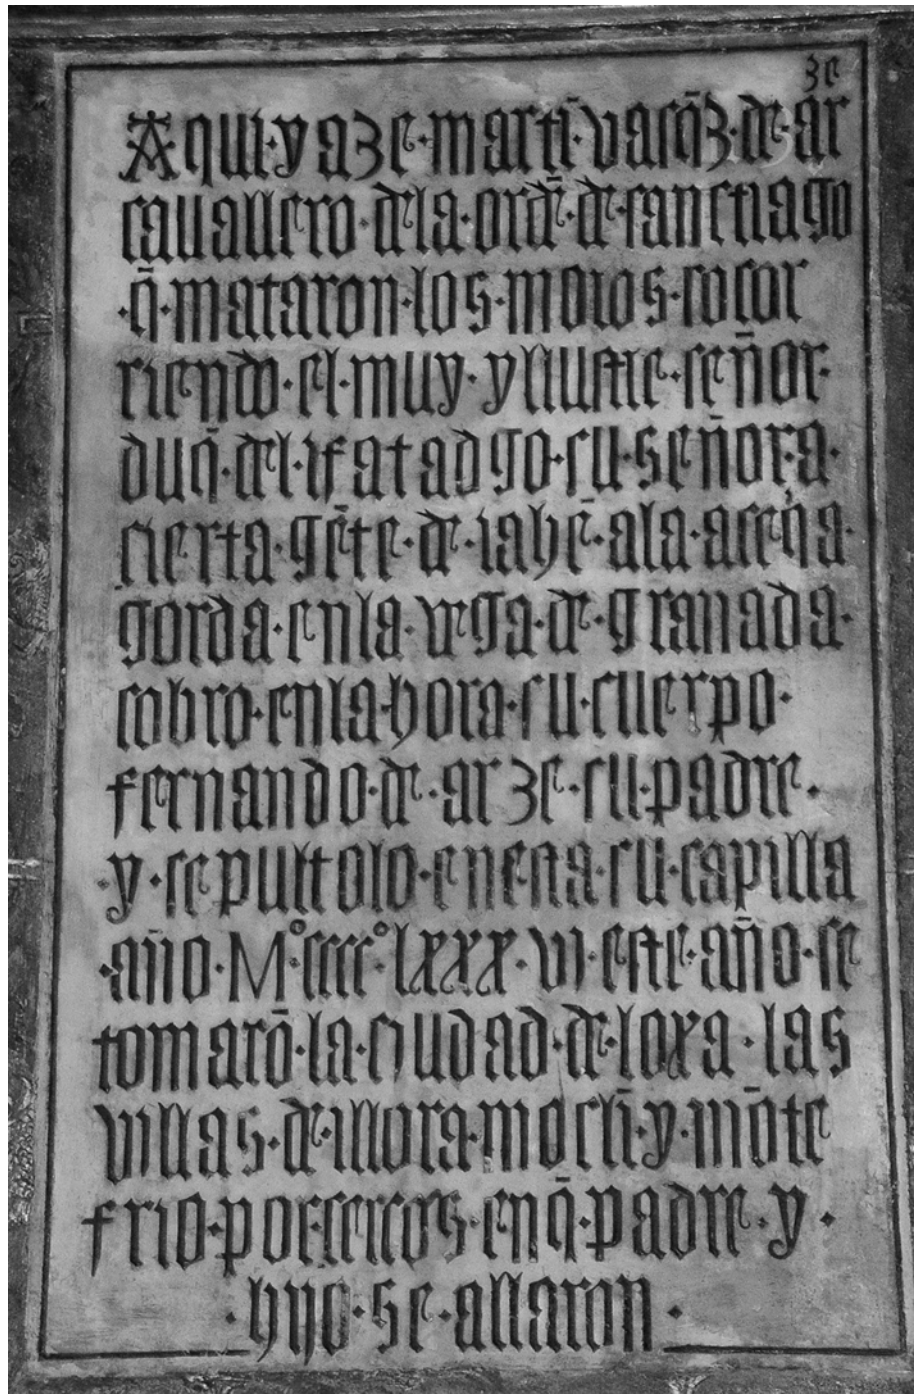 ze
Aqui·yaze·martī·vasq̄z·de·ar
cauallero·dela·ordē·de·sanctiago
·q̄·mataron·los·moros·socor
riendo·el·muy·yllustre·señor·
duq̄·del·ifantadgo·su·señor·a·
cierta·gēte·de·iahē·ala·aceq̄a·
gorda·enla·vega·de·granada·
cobro·enla·hora·su·cuerpo·
fernando·de·arze·su·padre·
·y·sepultolo·enesta·su·capilla
·año·Mº·ccccº·lxxx·vi·este·año·se
tomarō·la·ciudad·de·loxa·las
villas·de·illora·moclī·y·mōte
frio·por·cercos·enq̄·padre·y·
·hijo·se·allaron·